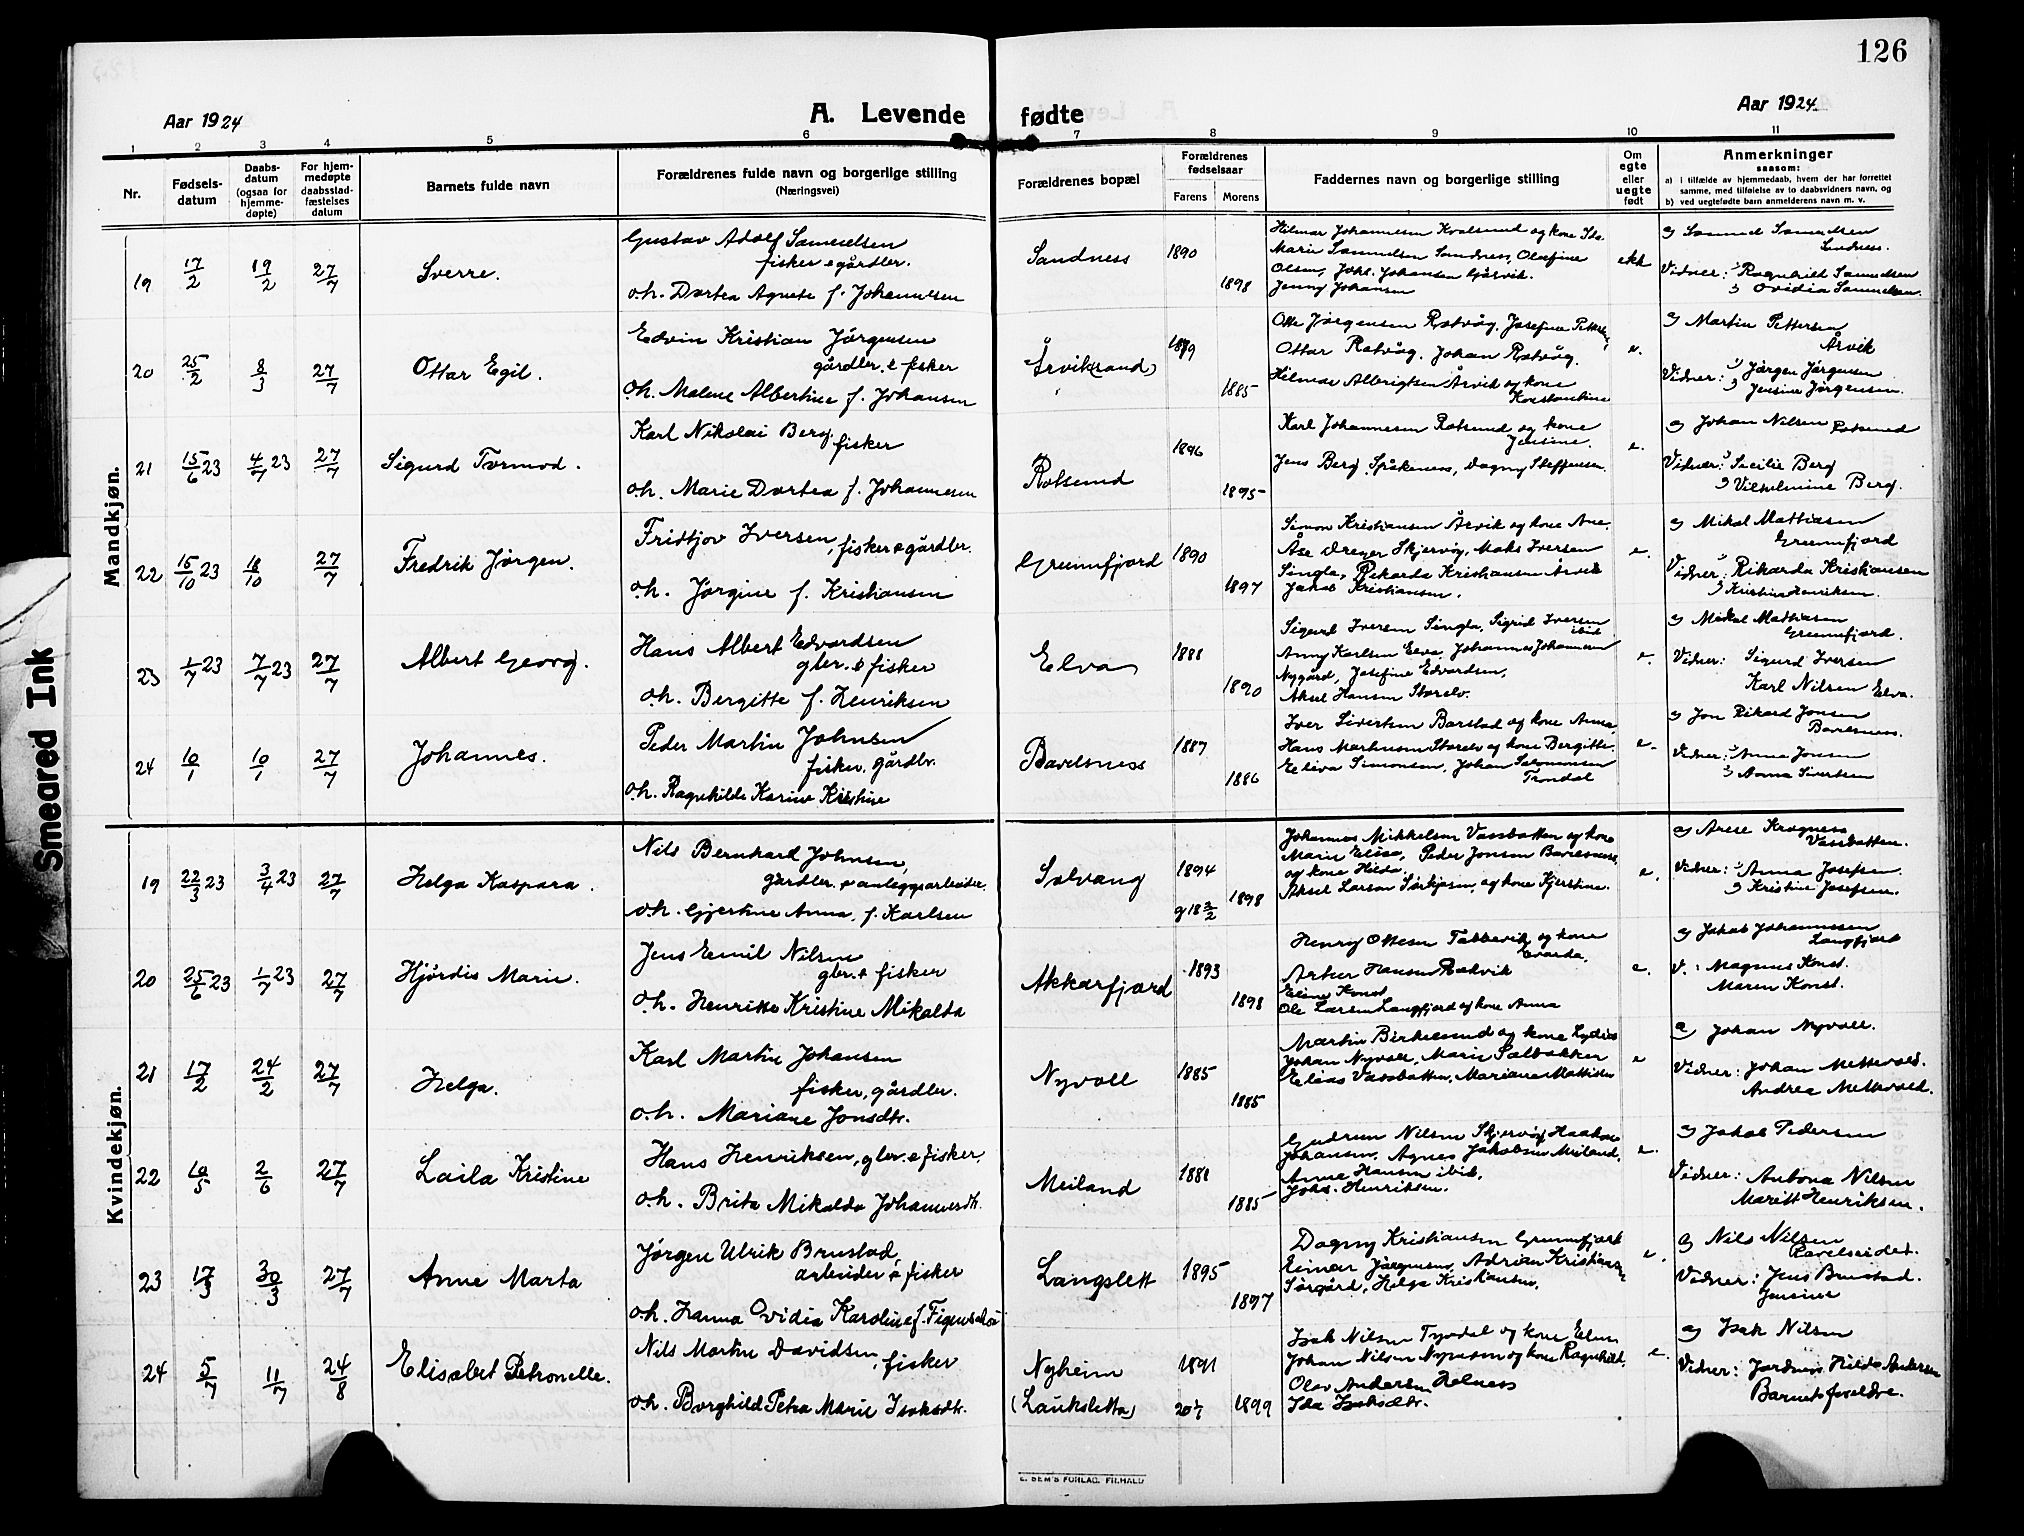 126
Aar 1924
A. Levende fødte
Aar 1924
1 2 3 4 5 6 7 8 9 10 11
Nr.
Fødsels-
datum
Daabs-
datum
(ogsaa for
hjemme-
døpte)
For hjem-
medøpte
daabsstad-
fæstelses
datum
Barnets fulde navn
Forældrenes fulde navn og borgerlige stilling
(Næringsvei)
Forældrenes bopæl
Forældrenes
fødselsaar
Farens Morens
Faddernes navn og borgerlige stilling
Om
egte
eller
uegte
født
Anmerkninger
saasom:
a) i tilfælde av hjemmedaab, hvem der har forrettet
samme, med tilføielse av to daabsvidners navn, og
b) ved uegtefødte barn anmelderens navn m. v.
Mandkjøn.
19 17/2 19/2 27/7 Sverre.
Gustav Adolf Samuelsen
fisker o gårdbr.
o.h. Dortea Agnete f. Johannesen
Sandness 1890 1898
Hilmar Johannesen Kvalsund og kone Ida
Marie Samuelsen Sandness, Olufine
Olsen, Johs. Johansen
Jenny Johansen
ekt
a) Samuel Samuelsen
Sandness.
Vidner: 1) Ragnhild Samuelsen
2) Ovidia Samuelsen.
20 25/2 8/3 27/7 Ottar Egil.
Edvin Kristian Jørgensen
gårdbr. & fisker
o.h. Malene Albertine f. Johansen
Årvik(sand) 1879 1885
Otto Jørgensen Rotvåg, Josefine Petters.,
Ottar Rotvåg. Johan Rotvåg.
Hilmar Albrigtsen Årvik og kone
Konstantine
e.
a) Martin Pettersen
Årvik
Vidner: 1) Jørgen Jørgensen
2) Jensine Jørgensen.
21 15/6 23 4/7 23 27/7 Sigurd Tormod.
Karl Nikolai Berg
fisker
o.h. Marie Dortea f. Johannesen
Rotsund 1896 1895
Karl Johannesen Rotsund og kone
Jensine.
Jens Berg, Spåkenes, Dagny Steffensen.
e.
a) Johan Nilsen Rotsund
Vidner: 1) Secilie Berg
2) Vilhelmine Berg.
22 15/10 23 18/10 27/7 Fredrik Jørgen.
Fridtjov Iversen, fisker o gårdbr.
o.h. Jørgine f. Kristiansen
Grunnfjord 1890 1897
Simon Kristiansen Årvik og kone Ane,
Åse Dreyer Skjervøy, Maks Iversen
Singla, Rikarda Kristiansen Årvik
Jakob Kristiansen.
e.
a) Mikal Mattiasen
Grunnfjord
Vidner: 1) Rikarda Kristiansen
2) Kristina Henriksen.
23 1/7 23 7/7 23 27/7 Albert Georg.
Hans Albert Edvardsen
gbr. & fisker
o.h. Bergitte f. Henriksen
Elva 1881 1890
Sigurd Iversen Singla, Sigrid Iversen
ibid
Anny Karlsen Elva, Johannes Johansen
Nygård, Josefine Edvardsen,
Aksel Hansen Storelv.
e.
a) Mikal Mathiesen
Grunnfjord.
Vidner: Sigurd Iversen
Karl Nilsen Elva.
24 10/1 10/1 27/7 Johannes.
Peder Martin Johnsen
fisker, gårdbr.
o.h. Ragnhilde Karine Kristine
Bavelsness 1887 1886
Iver Sivertsen Borstad og kone Anna,
Hans Markussen Storelv og kone Bergitte,
Eliva Simonsen, Johan Salomonsen
Trondal
e.
a) Jon Rikard Jonsen
Bavelsness.
Vidner: 1) Anna Jonsen
2) Anna Sivertsen
Kvindekjøn.
19 22/3 23 3/4 23 27/7 Helga Kaspara.
Nils Bernhard Johnsen,
gårdbr. & anleggsarbeider.
o.h. Gjertine Anna, f. Karlsen
Solvang 1894 g 18 3/2 1898
Johannes Mikkelsen Vassbotten og kone
Marie Elisa, Peder Jonsen Bavelsness,
og kone Hilda
Aksel Larsen Sørkjosen, og kone Kjerstine.
e.
a) Arese Kragness
Vassbotten.
Vidner: 1) Anna Josefsen.
2) Kristine Josefsen.
20 25/6 23 1/7 23 27/7 Hjørdis Marie.
Jens Emil Nilsen
gbr. & fisker
o.h. Henrikke Kristine Mikalda
Akkarfjord 1893 1898
Henry Ottesen Tabbevik og kone
Evarda,
Artur Hansen Rakvik
Eline Konst
Ole Larsen Langfjord og kone Anna
e.
a) Jakob Johannessen
Langfjord
V.: Magnus Konst.
Maren Konst.
21 17/2 24/2 27/7 Helga.
Karl Martin Johansen
fisker, gårdbr.
o.h. Mariane Jonsdtr.
Nyvoll 1885 1885
Martin Birkelund og kone Lydia
Johan Nyvoll, Marie Solbakken
Elias Vassbotten, Mariane Mattisen
e
a) Johan Nyvoll.
Vidner: Johan Mettevold.
Andrea Mettevold.
22 10/5 2/6 27/7 Laila Kristine
Hans Henriksen, gbr. & fisker,
o.h. Brita Mikalda Johannesdtr.
Meiland 1881 1885
Gudrun Nilsen Skjervøy, Haakon
Johansen, Agnes Jakobsen Meiland,
Anna Hansen ibid,
Johs. Henriksen.
e.
a) Jakob Pedersen
Vidner: Antona Nilsen
Marett Henriksen.
23 17/3 30/3 27/7 Anne Marta
Jørgen Ulrik Brustad,
arbeider & fisker
o.h. Hanna Ovidia Karoline f. Figenschou
Langslett 1895 1897
Dagny Kristiansen Grunnfjord
Einar Jørgensen, Adrian Kristiansen,
Sørgård, Helga Kristiansen.
e.
a) Nils Nilsen
Ravelseidet.
Vidner: Jens Brustad.
Jensine
24 5/7 11/7 24/8 Elisabet Petronelle.
Nils Martin Davidsen, fisker
o.h. Borghild Petra Marie Isaksdtr.
Nyheim
(Lauksletta) 1891 20/7 1899
Isak Nilsen Tyvdal og kone Elen
Johan Nilsen Nynesen og kone Ragnhild,
Olav Andersen Helness
Ida Isaksdtr.
e.
a) Isak Nilsen
Vidner: Jordmor Hilda Andersen
Barnets foreldre.
E. SEM'S FORLAG, FR.HALD
Smeared Ink